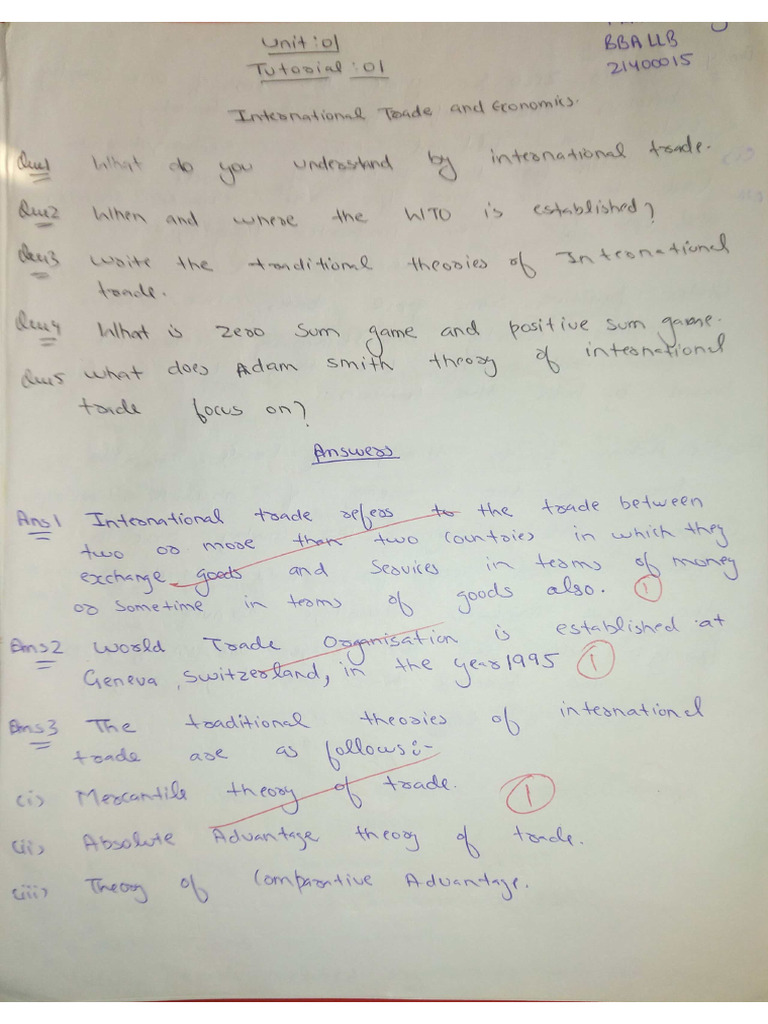 Unit:01
BBA LLB
Tutorial:01
21400015
International Trade and Economics.
Que1 What do you understand by international trade.
Que2 When and where the WTO is established?
Que3 Write the traditional theories of International
trade.
Que4 What is zero sum game and positive sum game.
Que5 What does Adam smith theory of international
trade focus on?
Answers
Ans1 International trade refers to the trade between
two or more than two countries in which they
exchange goods and services in terms of money
or sometime in terms of goods also. 1
Ans2 World Trade Organisation is established at
Geneva, Switzerland, in the year 1995 1
Ans3 The traditional theories of international
trade are as follows:-
(i) Mercantile theory of trade. 1
(ii) Absolute Advantage theory of trade.
(iii) Theory of Comparative Advantage.